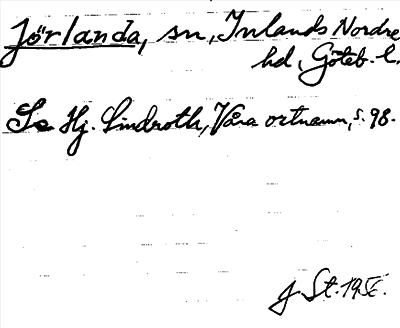 Jörlanda, sn, Inlands Nordre
hd, Göteb. l.
Se Hj. Lindroth, Våra ortnamn, s. 98.
J. St. 195